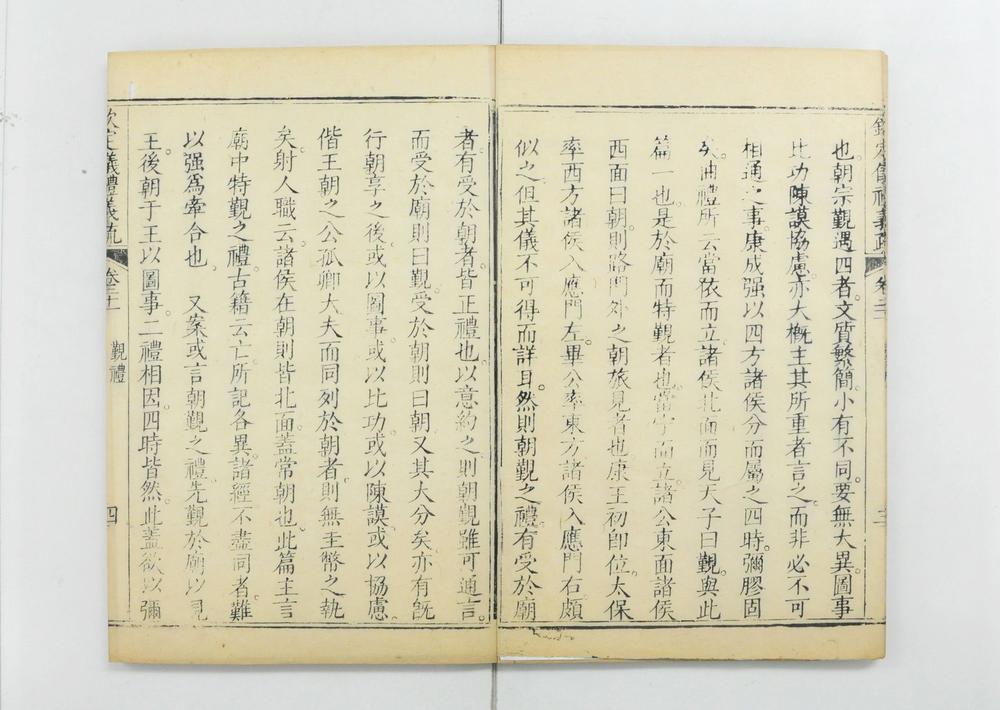 也。朝宗覲遇四者。文質繁簡。小有不同。要無大異。圖事
比功陳謨協慮。亦大概主其所重者言之。而非必不可
相通之事。康成强以四方諸侯分而屬之四時。彌膠固
矣。曲禮所云當依而立。諸侯北面而見天子曰覲。與此
篇一也。是於廟而特覲者也。當宁而立。諸公東面諸侯
西面曰朝。則路門外之朝旅見者也。康王初卽位。太保
率西方諸侯入應門左。畢公率東方諸侯入應門右。頗
似之。但其儀不可得而詳耳。然則朝覲之禮。有受於廟
者。有受於朝者。皆正禮也。以意約之。則朝覲雖可通言。
而受於廟則曰覲。受於朝則曰朝。又其大分矣。亦有旣
行朝享之後。或以圖事。或以比功。或以陳謨。或以協慮。
偕王朝之公孤卿大夫而同列於朝者。則無玉幣之執
矣。射人職云。諸侯在朝則皆北面。蓋常朝也。此篇主言
廟中特覲之禮。古籍云亡。所記各異。諸經不盡同者。難
以强爲牽合也 又案或言朝覲之禮。先覲於廟以見
王。後朝于王以圖事。二禮相因。四時皆然。此蓋欲以彌
欽定儀禮義疏 卷二十一 覲禮 四